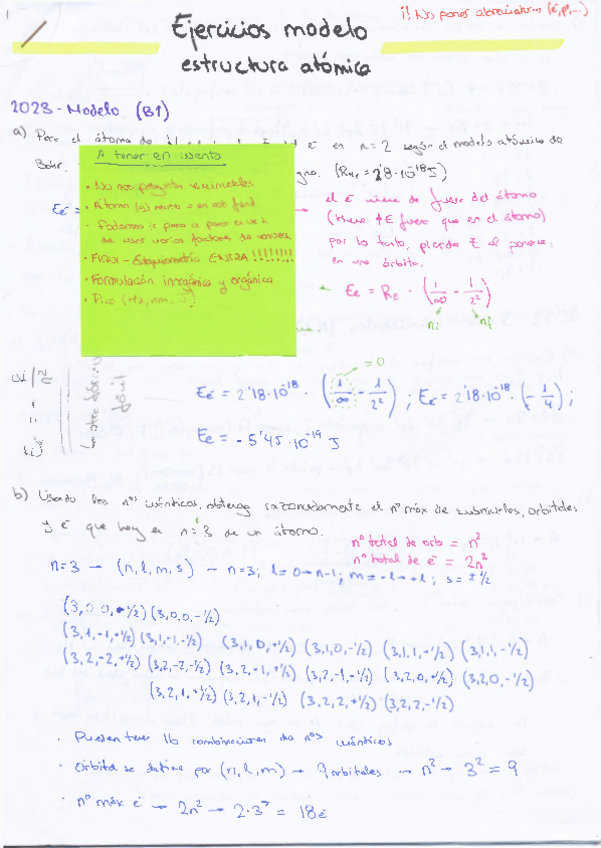 ¡¡ No poner abreviaturas (é, p⁺, ...)
Ejercicios modelo
estructura atómica
2023 - Modelo (B1)
a) Para el átomo de
é en n=2 según el modelo atómico de
Bohr.
signo. (R_H = 2'18·10⁻¹⁸ J)
A tener en cuenta
• No nos preguntan
• Átomo (g) neutro = en est fund
• Podemos ir paso a paso o
de usar varios factores de convers.
• FIJAX - Estequiometría ENTRA !!!!!!!!
• Formulación inorgánica y orgánica
• Pico (Hz, nm, J)
Eé =
→ el é viene de fuera del átomo
(tiene ↑E fuera que en el átomo)
por lo tanto, pierde E al ponerse
en una órbita.
Eé = R_E · (1/∞ - 1/2²)
ni nf
= 0
Eé = 2'18·10⁻¹⁸ · (1/∞ - 1/2²) ; Eé = 2'18·10⁻¹⁸ · (- 1/4) ;
Eé = - 5'45·10⁻¹⁹ J
b) Usando los nºs cuánticos, obtenga razonadamente el nº máx de subniveles, orbitales
y é que hay en n=3 de un átomo.
nº total de orb = n²
nº total de é = 2n²
n=3 → (n, l, m, s) → n=3; l=0→n-1; m=-l→+l; s=±1/2
(3,0,0,+1/2) (3,0,0,-1/2)
(3,1,-1,+1/2) (3,1,-1,-1/2) (3,1,0,+1/2) (3,1,0,-1/2) (3,1,1,+1/2) (3,1,1,-1/2)
(3,2,-2,+1/2) (3,2,-2,-1/2) (3,2,-1,+1/2) (3,2,-1,-1/2) (3,2,0,+1/2) (3,2,0,-1/2)
(3,2,1,+1/2) (3,2,1,-1/2) (3,2,2,+1/2) (3,2,2,-1/2)
· Pueden tener 16 combinaciones de nºs cuánticos
· Orbital se define por (n, l, m) → 9 orbitales → n² → 3² = 9
· nº máx é → 2n² → 2·3² = 18é